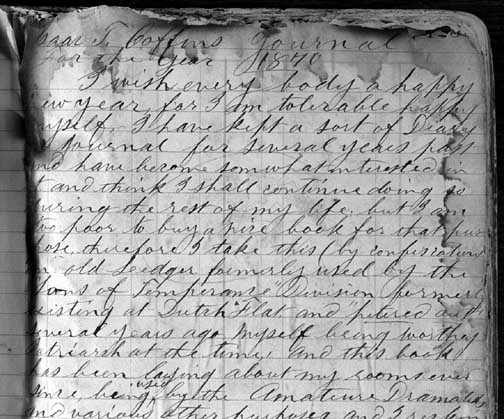 Isaac T. Coffins Journal
For the Year 1870
I wish every body a happy
ew year, for I am tolerable happy
myself, I have kept a sort of Diary
Journal for several years past
and have become somwhat interested in
it and think I shall continue doing so
during the rest of my life, but I am
too poor to buy a nice book for that pur
pose, therefore I take this (by confiscation)
an old Ledger formerly used by the
Sons of Temperance" Division formerly
existing at Dutch Flat and petered out
several years ago myself being worthy
Patriarch at the time, and this book
has been laying about my rooms ever
since being used by the Amature Dramatic
and various other purposes and